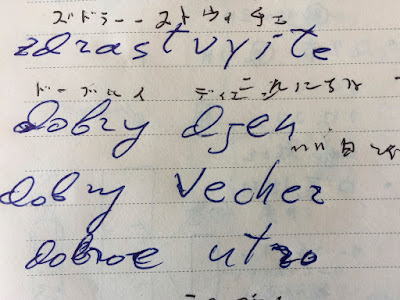 ズドラーストウィチェ
zdrastvyite
ドーブルイ ディエニ
dobry djen
dobry vecher
dobroe utro